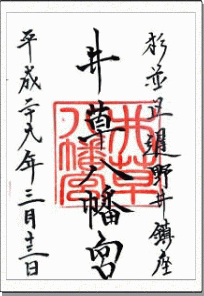 杉並区遅野井鎮座
井草八幡宮
平成二十九年三月十三日
井草
八幡宮